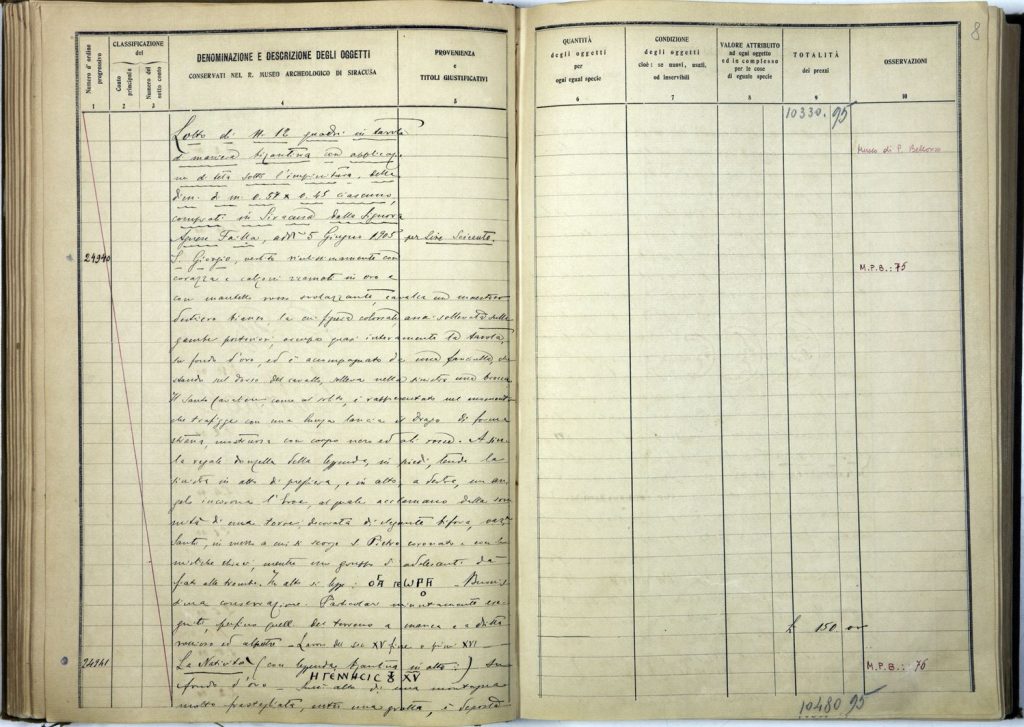 8
Numero d'ordine progressivo
1
CLASSIFICAZIONE
del
Conto principale
2
Numero del sotto conto
3
DENOMINAZIONE E DESCRIZIONE DEGLI OGGETTI
CONSERVATI NEL R. MUSEO ARCHEOLOGICO DI SIRACUSA
4
PROVENIENZA
e
TITOLI GIUSTIFICATIVI
5
QUANTITÀ
degli oggetti
per
ogni egual specie
6
CONDIZIONE
degli oggetti
cioè: se nuovi, usati,
od inservibili
7
VALORE ATTRIBUITO
ad ogni oggetto
ed in complesso
per le cose
di eguale specie
8
TOTALITÀ
dei prezzi
9
OSSERVAZIONI
10
10330.95
Lotto di N. 12 quadri in tavola
di maniera bizantina con
di tela sotto l'imprimitura, della
dim. di m. 0.57 × 0.45 ciascuno,
comprati in Siracusa dalla Signora
Agnese Failla, addì 5 Giugno 1905 per Lire Seicento.
Museo di P. Bellomo
24940
S. Giorgio, vestito con
corazza e calzari ricamati in oro e
con mantello rosso svolazzante, cavalca un maestoso
destriero bianco, la cui figura colossale, sollevata sulle
gambe posteriori, occupa quasi interamente la tavola,
su fondo d'oro, ed è accompagnato da una fanciulla, che
stando sul dorso del cavallo, solleva nella sinistra una brocca.
Il Santo cavaliere come al solito, è rappresentato nel momento
che trafigge con una lunga lancia il drago di forma
strana, mostruosa con corpo nero ed ali rosse. A
la regale donzella della leggenda, in piedi, tende la
sinistra in atto di preghiera, e in alto, a destra, un an-
gelo incorona l'Eroe, al quale acclamano dalla som-
mità di una torre, decorata di elegante bifora,
Santi, in mezzo a cui si scorge S. Pietro coronato e con le
chiavi, mentre un gruppo di adolescenti dà
fiato alle trombe. In alto si legge: Buonis-
sima conservazione. Particolari minutamente ese-
guiti, perfino quelli del terreno a manca e a dritta
roccioso ed alpestre - Lavoro del sec XV fine o princ XVI
M.P.B.: 75
£ 150 00
24941
La Natività (con leggenda bizantina in alto:) su
Η ΓΕΝΝΗCΙC XV
fondo d'oro - Sull'alto di una montagna
molto frastagliata, entro una grotta, è deposto
M.P.B.: 76
10480 95